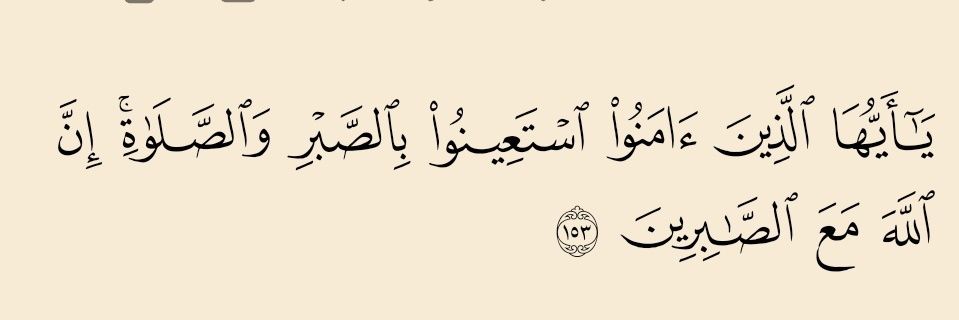 يَـٰٓأَيُّهَا ٱلَّذِينَ ءَامَنُوا۟ ٱسْتَعِينُوا۟ بِٱلصَّبْرِ وَٱلصَّلَوٰةِ ۚ إِنَّ
ٱللَّهَ مَعَ ٱلصَّـٰبِرِينَ ١٥٣